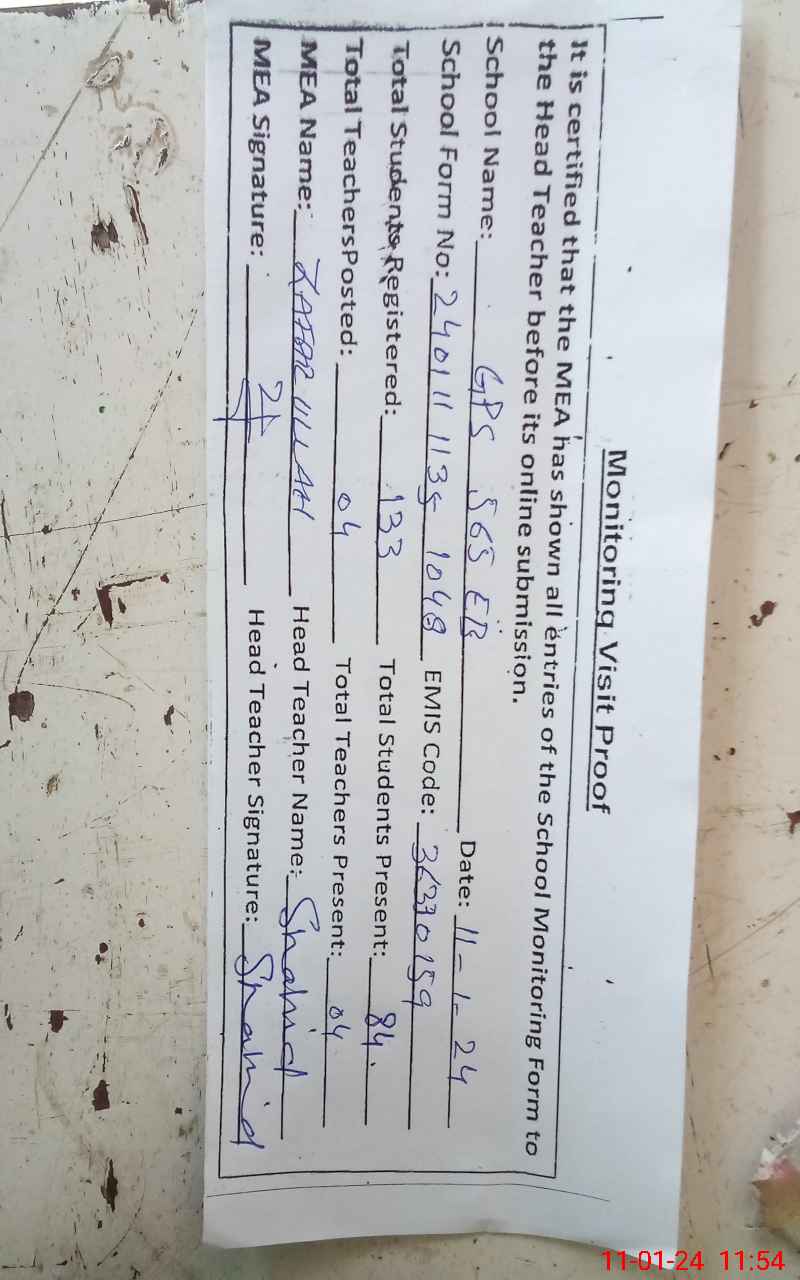 Monitoring Visit Proof
It is certified that the MEA has shown all entries of the School Monitoring Form to
the Head Teacher before its online submission.
School Name: GPS 565 EB Date: 11-1-24
School Form No: 240111 1135 1048 EMIS Code: 36330159
Total Students Registered: 133 Total Students Present: 84.
Total TeachersPosted: 04 Total Teachers Present: 04
MEA Name: ZAFAR ULLAH Head Teacher Name: Shahid
MEA Signature: Head Teacher Signature: Shahid
11-01-24 11:54